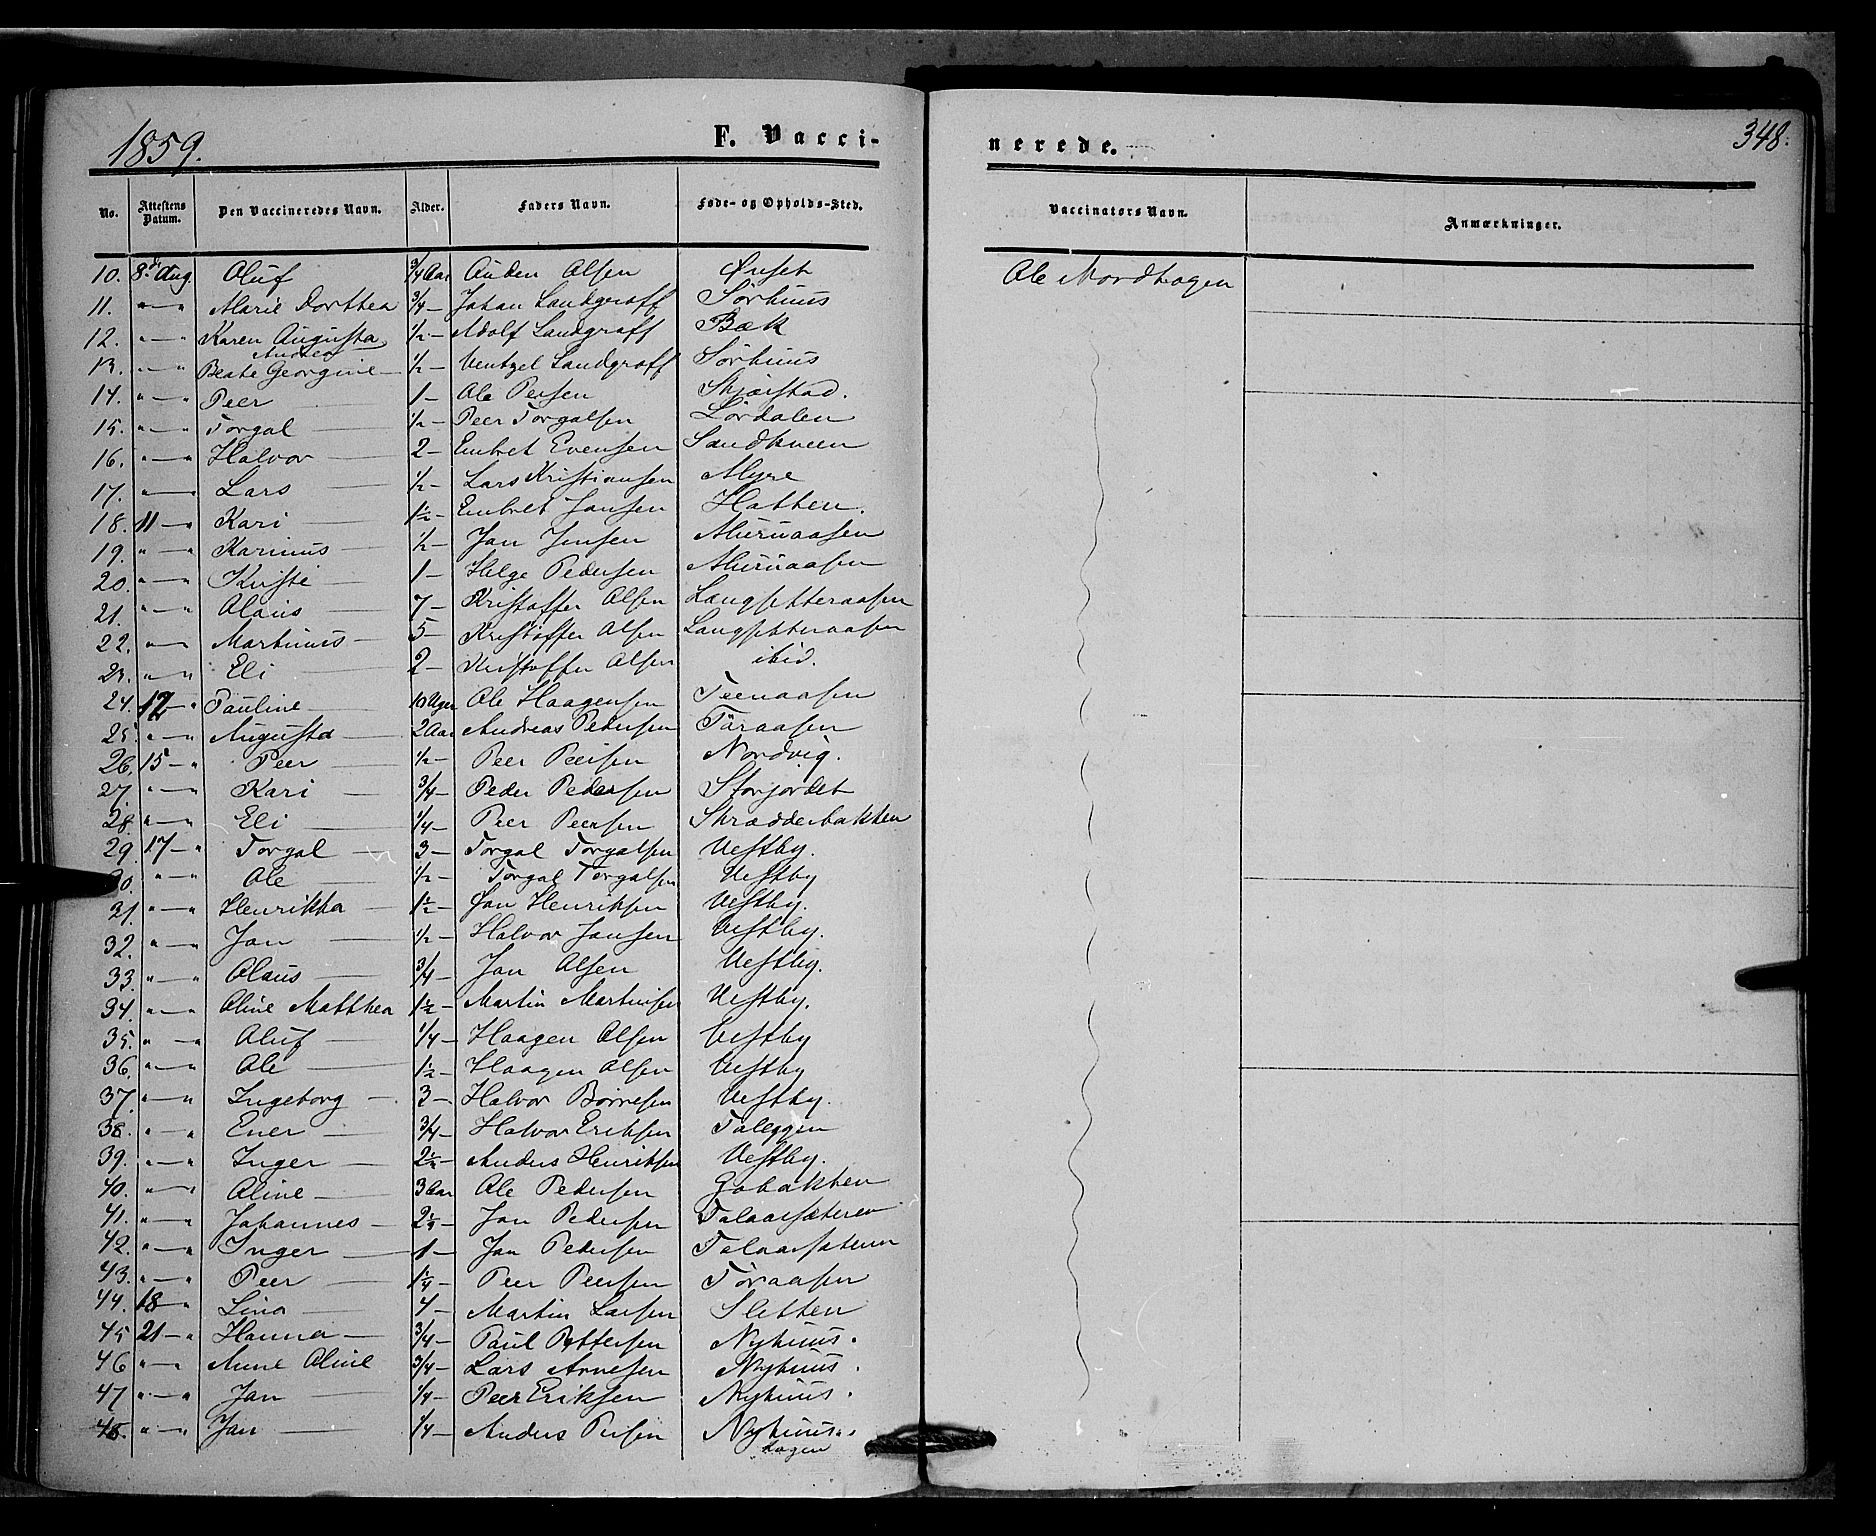 1859.
F. Vacci-
nerede.
348.
No. Attestens Datum. Den Vaccineredes Navn. Alder. Faders Navn. Føde- og Opholds-Sted. Vaccinators Navn. Anmærkninger.
10. 8de Aug. Oluf 3/4 Aar Auden Olsen Ørset Ole Nordhagen
11. " — " Marie Dorthea 3/4 — Johan Landgraff Sørhuus
12. " — " Karen Augusta 1/2 — Adolf Landgraff Bæk
13. " — " Beate Andrea Georgine — 1/2 — Ventzel Landgraff Sørhuus
14. " — " Peer 1 — Ole Persen Skjærstad.
15. " — " Torgal — 1/2 — Peer Torgalsen Lørdalen
16. " — " Halvor — 2 — Embret Evensen Sandkveen
17. " — " Lars — 1/2 — Lars Kristiansen Myre
18. 11 — " Kari — 1 1/2 — Embret Jonsen Hatten.
19. " — " Karinus — 1/2 — Jon Jensen Muruaasen
20. " — " Kristi — 1 — Helge Pedersen Muruaasen
21. " — " Olaus — 7 — Kristoffer Olsen Langsetteraasen
22. " — " Martinus — 5 — Kristoffer Olsen Langsetteraasen
23. " — " Eli — 2 — Kristoffer Olsen ibid.
24. 12 — " Pauline — 10 Uger Ole Haagensen Teenaasen
25. " — " Augusta — 2 Aar Andreas Pedersen Töraasen
26. 15 — " Peer — 1/2 — Peer Peersen Nordvig.
27. " — " Kari — 3/4 — Peder Pedersen Storjordet
28. " — " Eli — 1/4 — Peer Peersen Skrædderbakken
29. 17 — " Torgal — 3 — Torgal Torgalsen Vestby.
30. " — " Ole — 1/2 — Torgal Torgalsen Vestby
31. " — " Henrikka — 1 1/2 — Jon Henriksen Vestby.
32. " — " Jon — 1/2 — Halvor Jonsen Vestby.
33. " — " Olaus — 3/4 — Jon Olsen Vestby.
34. " — " Oline Matthea 1 1/2 — Martin Martinsen Vestby.
35. " — " Oluf — 1/4 — Haagen Olsen Vestby
36. " — " Ole — 1 1/2 — Haagen Olsen Vestby
37. " — " Ingeborg — 3 — Halvor Börresen Vestby.
38. " — " Ener — 3/4 — Halvor Eriksen Töleggen
39. " — " Inger — 2 1/2 — Anders Henriksen Vestby.
40. " — " Oline — 3 Aar Ole Pedersen Gobakken
41. " — " Johannes — 2 1/2 — Jon Pedersen Tolaarsæteren
42. " — " Inger — 1 — Jon Pedersen Tolaarsæteren
43. " — " Peer — 1 1/4 — Peer Peersen Töraasen
44. 18 — " Lina — 4 — Martin Larsen Sletten
45 21 — " Hanna — 3/4 — Paul Pettersen Nyhuus.
46 " — " Anne Oline 3/4 — Lars Arnesen Nyhuus.
47 " — " Jon — 1/4 — Peer Eriksen Nyhuus.
48. " — " Jon — 1/4 — Anders Persen Nyhuus-
hagen